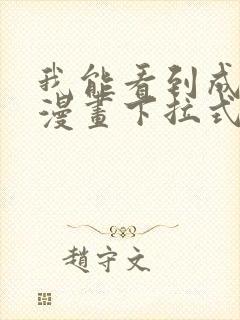 我能看到成
漫畫下拉式
趙守文